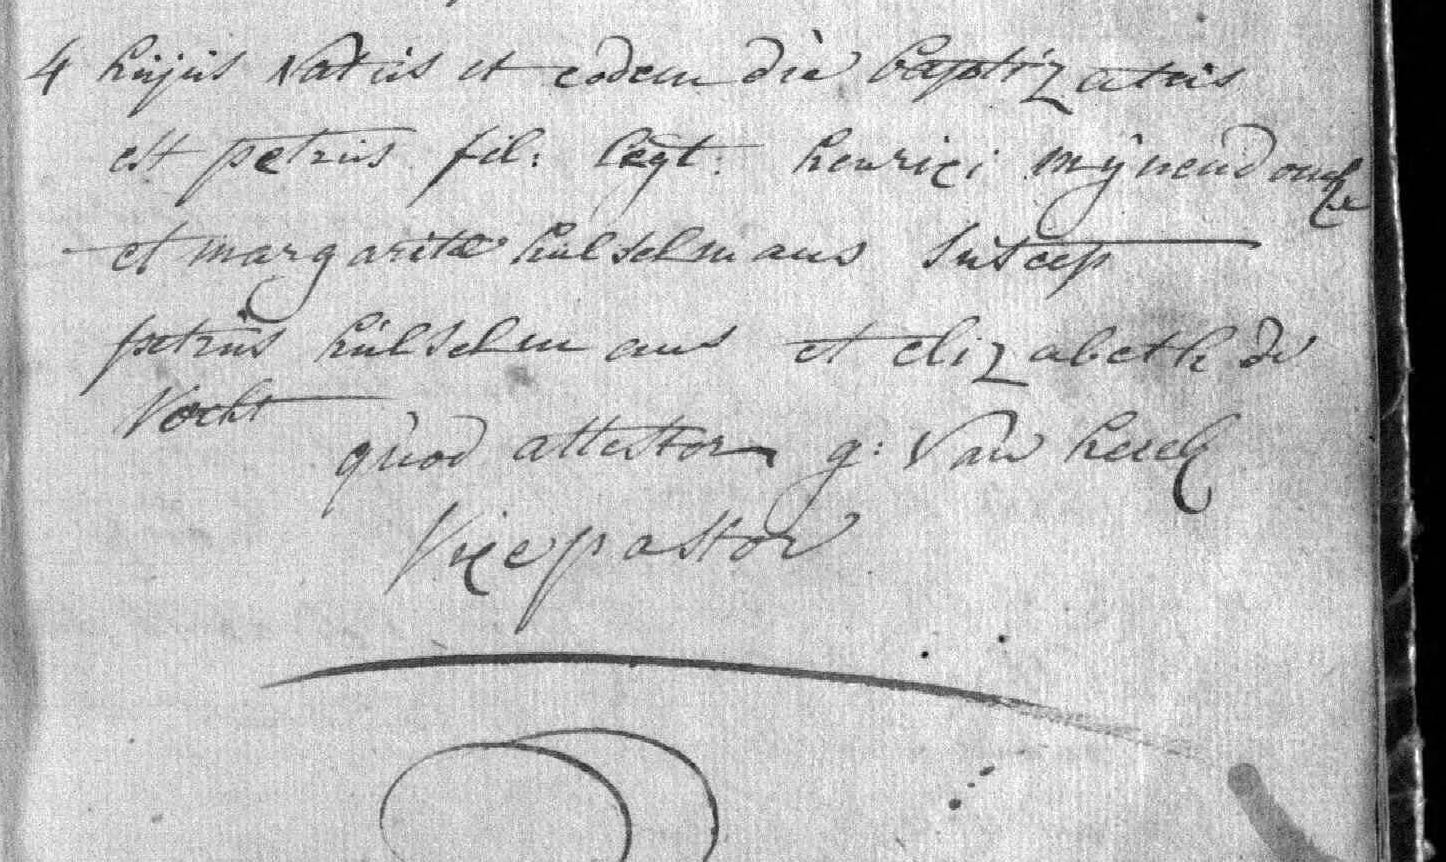 4 hujus natus et eodem die baptizatus
est petrus fil: legt: henrici mÿnendonckx
et margarita hulselmans suscep
petrus hulselmans et elizabeth de
Vocht
quod attestor g: Van hesel
Vicepastor